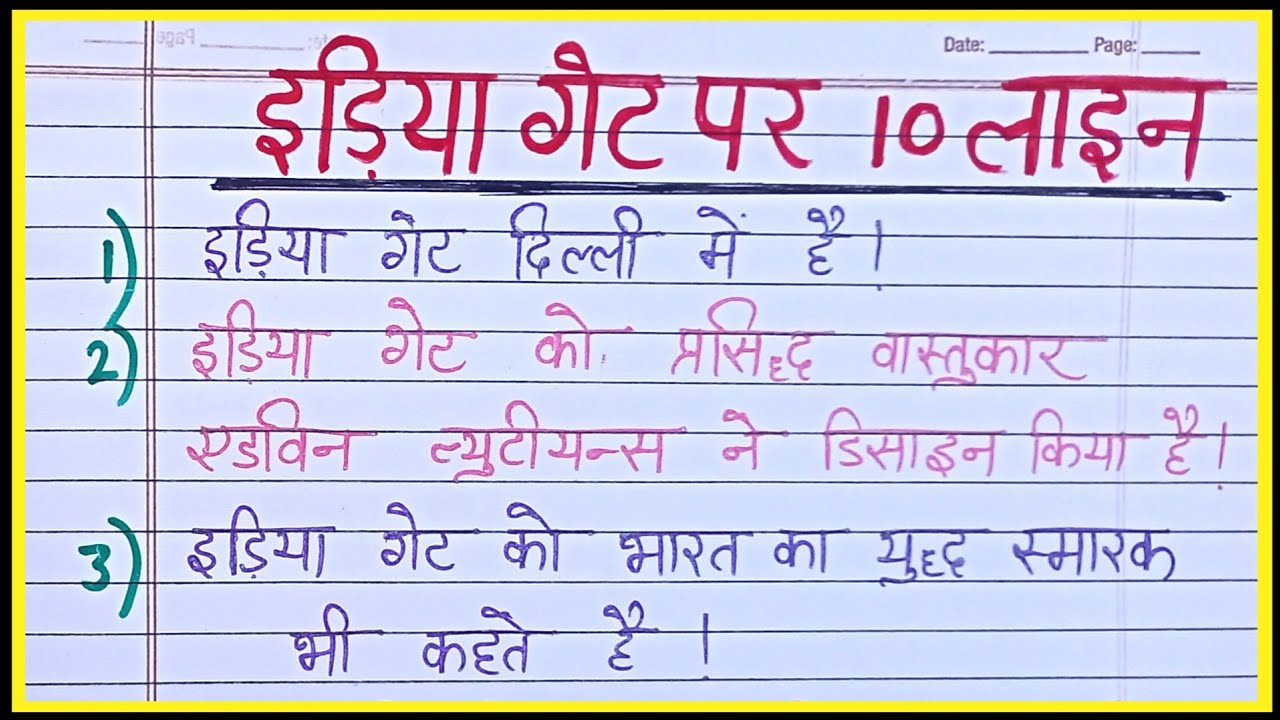 Date: ________ Page: _____
इड़िया गेट पर 10 लाइन
1) इड़िया गेट दिल्ली में है।
2) इड़िया गेट को प्रसिद्द वास्तुकार
एडविन ल्युटीयन्स ने डिसाइन किया है।
3) इड़िया गेट को भारत का युद्द स्मारक
भी कहते है ।